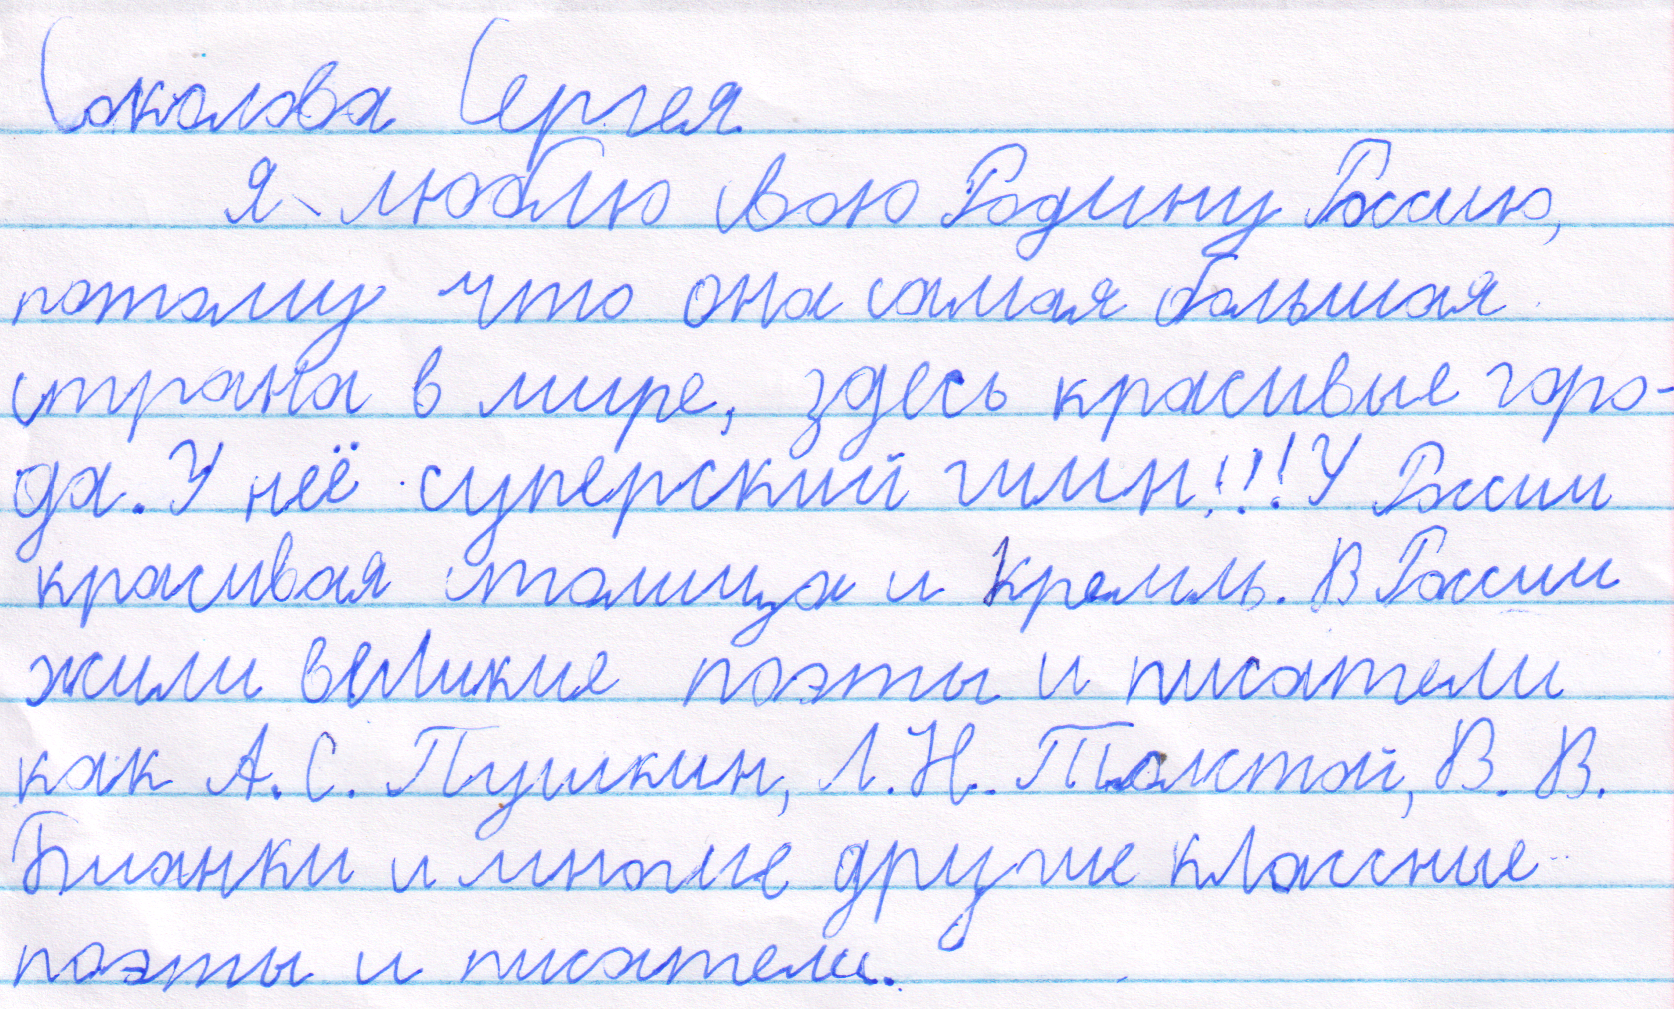 Соколова Сергея
Я люблю свою Родину Россию,
потому что она самая большая
страна в мире, здесь красивые горо-
да. У неё суперский гимн!!! У России
красивая столица и Кремль. В России
жили великие поэты и писатели
как А.С. Пушкин, Л.Н. Толстой, В.В.
Бианки и многие другие классные
поэты и писатели.